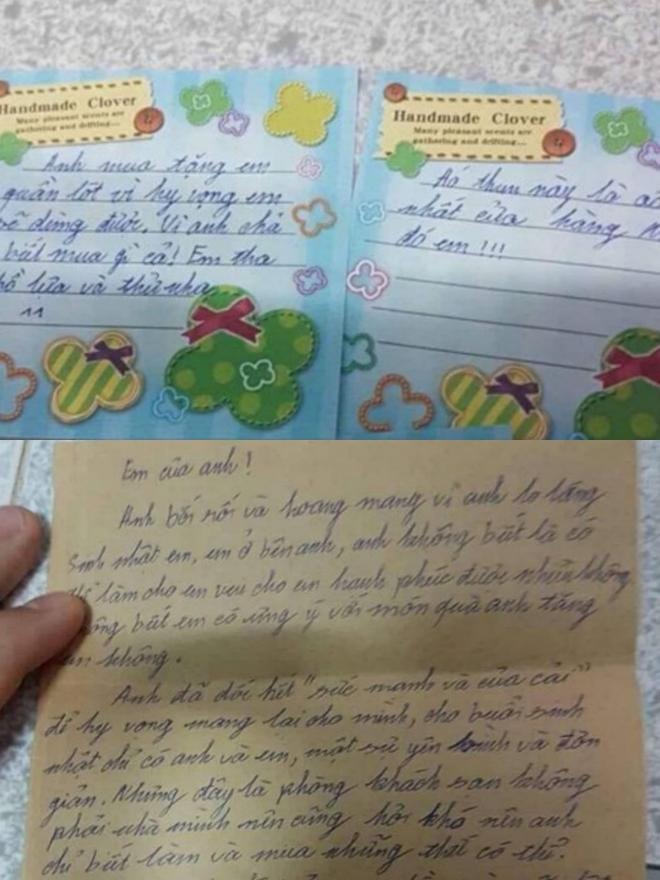 Handmade Clover
Many pleasant scents are
gathering and drifting...
Anh mua tặng em
quần lót vì hy vọng em
sẽ dùng được. Vì anh chả
biết mua gì cả! Em tha
hồ lựa và thử nha
^^
Handmade Clover
Many pleasant scents are
gathering and drifting...
Áo thun này là
nhất cửa hàng
đó em!!!
Em của anh!
Anh bối rối và hoang mang vì anh lo lắng
Sinh nhật em, em ở bên anh, anh không biết là có
làm cho em vui cho em hạnh phúc được nhiều không
biết em có ưng ý với món quà anh tặng
không.
Anh đã dốc hết "sức mạnh và của cải"
để hy vọng mang lại cho mình, cho buổi sinh
nhật chỉ có anh và em, một sự yên bình và đơn
giản. Nhưng đây là phòng khách sạn không
phải nhà mình nên cũng hơi khó nên anh
chỉ biết làm và mua những thứ có thể.